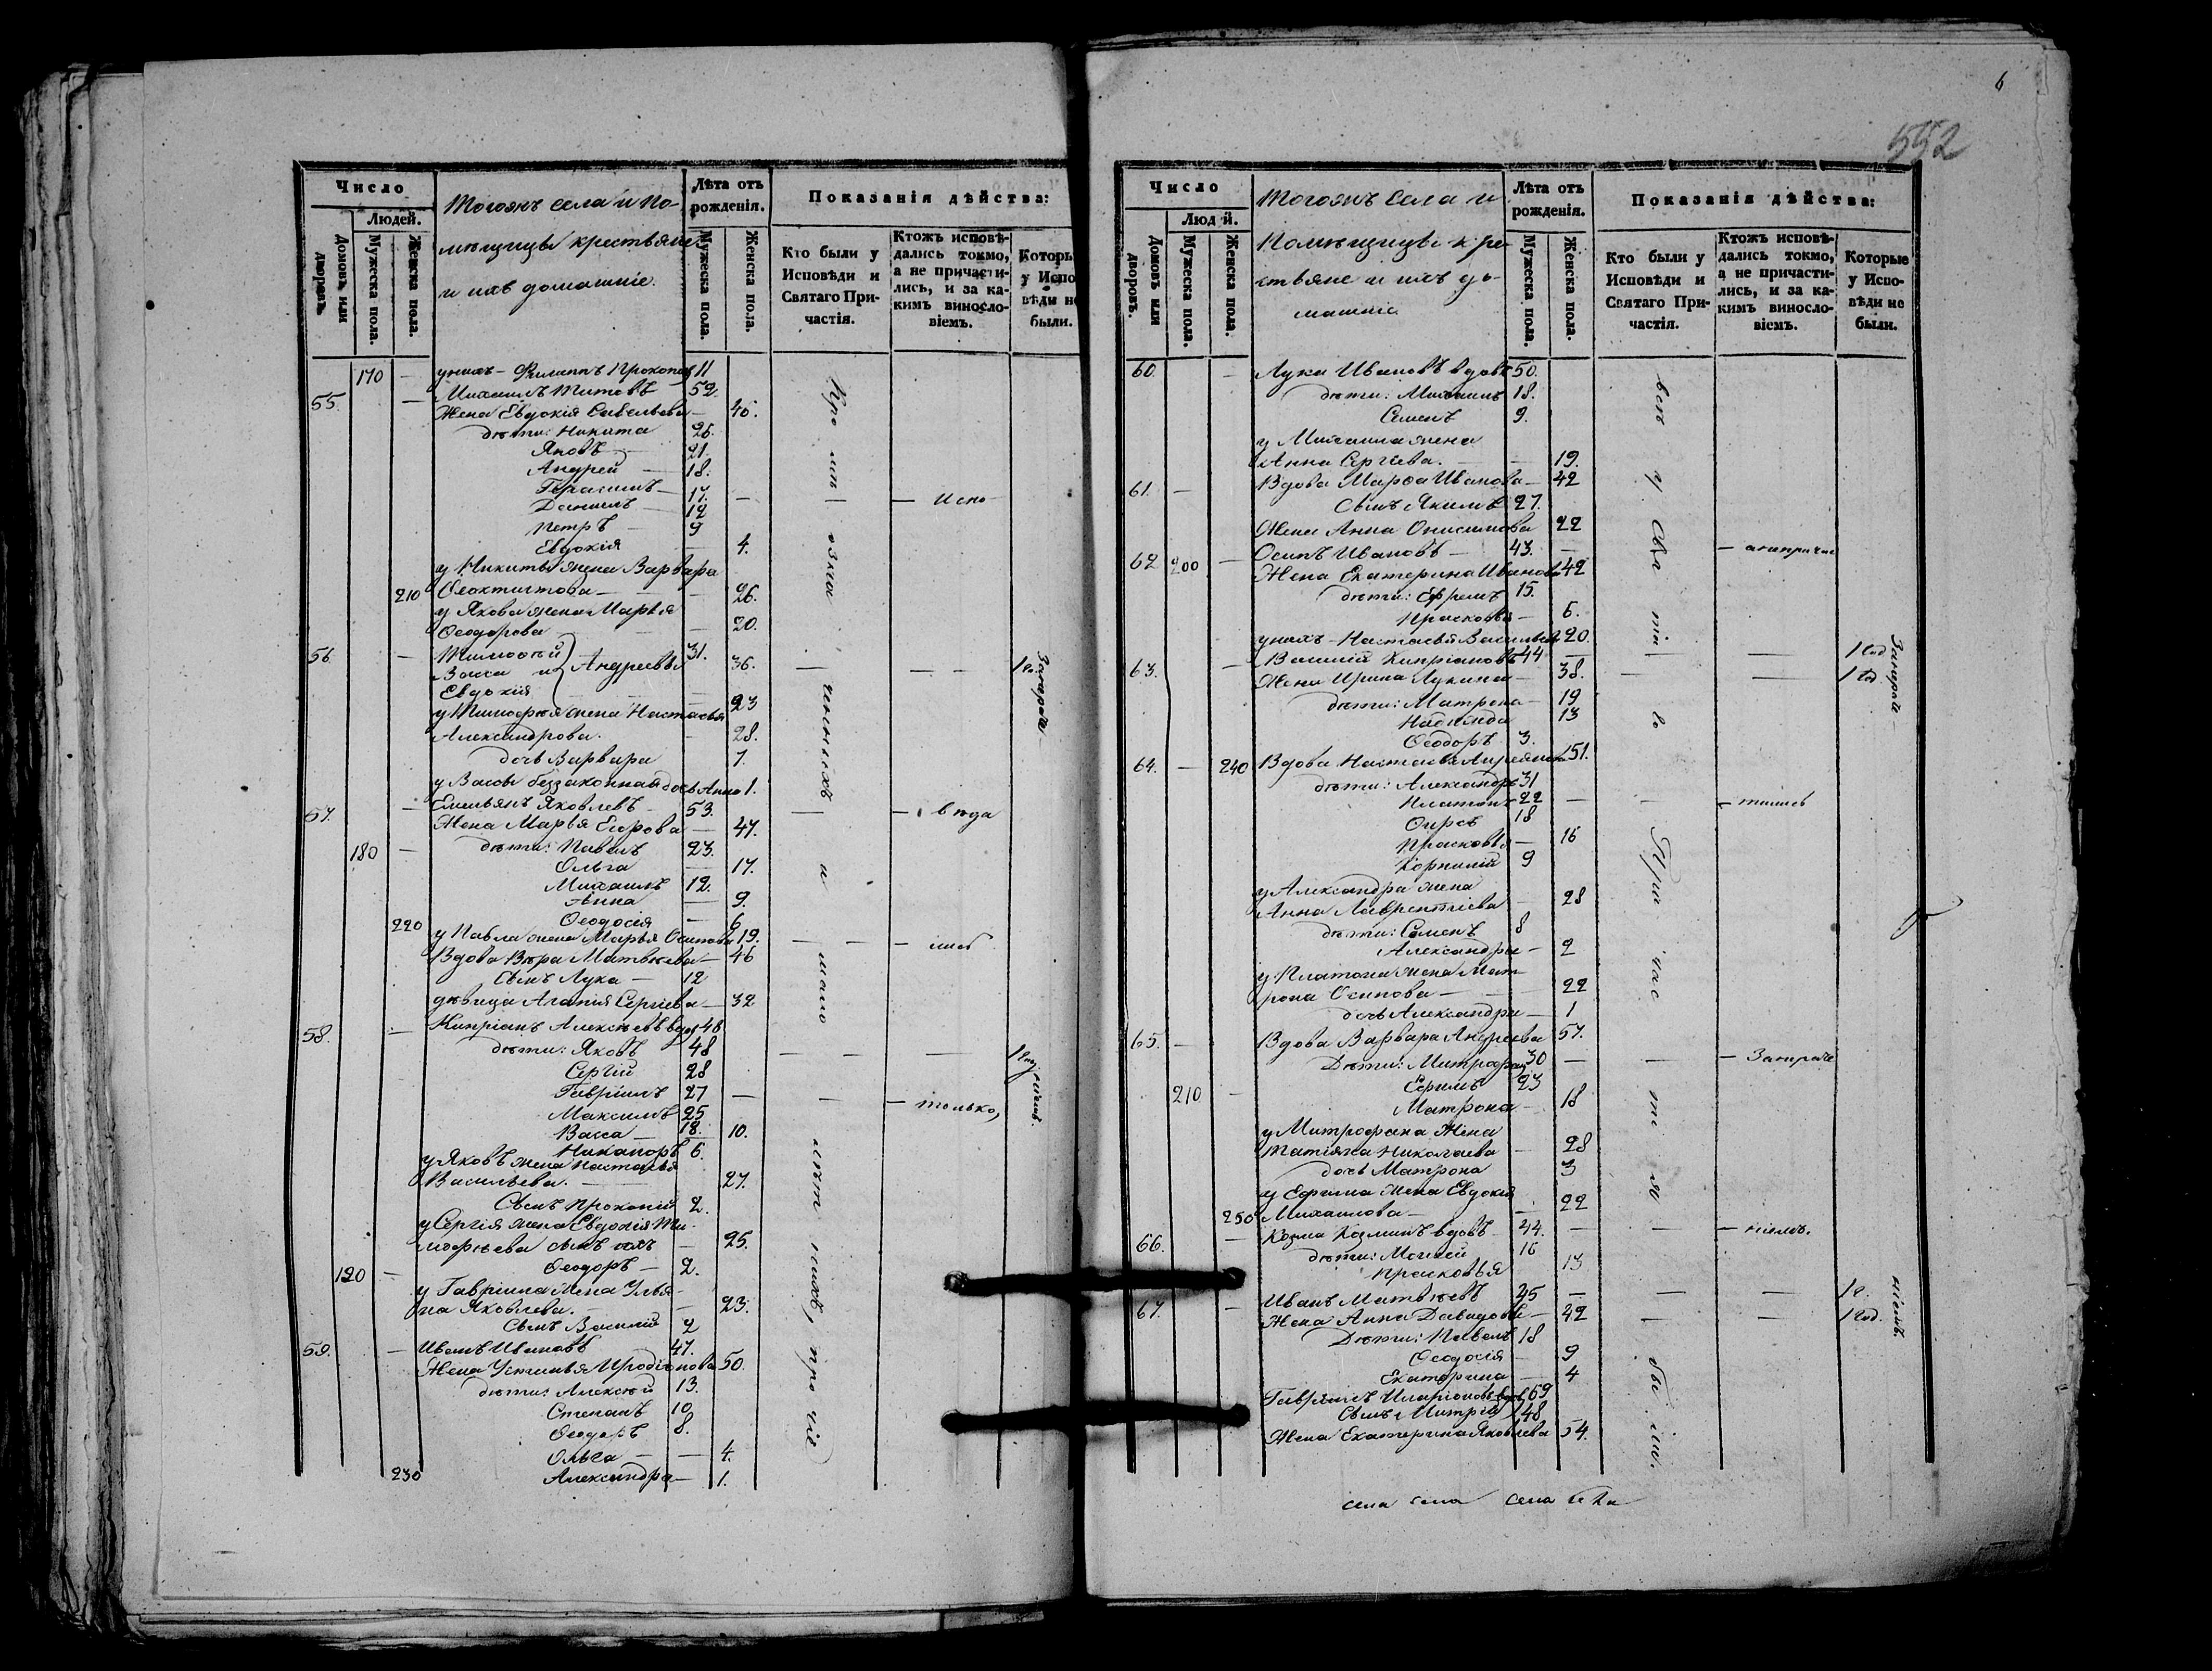 Число
Тогожъ села и по-
Лѣта отъ рожденія.
Показанія дѣйства:
Людей.
мѣщицы крестьяне
и ихъ домашніе.
Домовъ или дворовъ.
Мужеска пола.
Женска пола.
Мужеска пола.
Женска пола.
Кто были у Исповѣди и Святаго Причастія.
Ктожъ исповѣдались токмо, а не причастились, и за какимъ винословіемъ.
Которы у Испо вѣди не были.
170 — у нихъ – Филиппъ Прокопьевъ 11
55. — Михаилъ Титовъ 52.
Жена Евдокія Савельева — 46.
дѣти: Никита 26.
Яковъ — 21.
Андрей — 18.
Герасимъ — 17. — — — Испо-
Даніилъ — 12
Петръ — 9
Евдокія — 4.
у Никиты жена Варвара
210 Ѳеоктистова — 26.
у Якова жена Марья
Ѳеодорова — 20.
56. — Тимоѳей 31.
Васса и } Андреевы 36. — — — 1
Евдокія — 23
у Тимоѳея жена Настасья
Александрова. — 28.
дочь Варвара 7.
у Вассы беззаконная дочь Анна 1.
57. — Емельянъ Яковлевъ 53.
Жена Марья Егорова — 47.
180 — дѣти: Павелъ 23.
Ольга — 17.
Михаилъ 12.
Анна — 9.
Ѳеодосія — 6
220 у Павла жена Марья Осипова 19.
Вдова Вѣра Матвѣева — 46
Сынъ Лука — 12
дѣвица Агапія Сергіева — 32
58. — Кипріанъ Алексѣевъ вдов
дѣти: Яковъ 48
Сергій 28
Гавріилъ 27 — — — только,
Максимъ 25
Васса — 18. 10.
Никаноръ 6.
у Яковъ жена Настасья
Васильева. — 27.
Сынъ Прокопій 2.
у Сергія жена Евдокія Ти-
моѳѣева сынъ ихъ — 25.
190 — Ѳеодоръ — 2.
у Гавріила жена Улья-
на Яковлева. — 23.
Сынъ Василій 2
59. — Иванъ Ивановъ 47.
Жена Устинья Иродіонова 50.
дѣти: Алексѣй 13.
Степанъ 10
Ѳеодоръ 8.
Ольга — 4.
230 Александра — 1.
Кро мѣ озна ченныхъ и мало лѣт нихъ, про чіе
6
552
Число
Тогожъ села и
Лѣта отъ рожденія.
Показанія дѣйства:
Люд й.
Помѣщицы кре-
стьяне и ихъ до-
машніе
Домовъ или дворовъ.
Мужеска пола.
Женска пола.
Мужеска пола.
Женска пола.
Кто были у Исповѣди и Святаго Причастія.
Ктожъ исповѣдались токмо, а не причастились, и за какимъ винословіемъ.
Которые у Исповѣди не были.
60. — Лука Ивановъ вдовъ 50.
дѣти: Михаилъ 18.
Семенъ 9.
у Михаила жена
Анна Сергіева. — 19.
61. — Вдова Марѳа Иванова — 42
Сынъ Якимъ 27.
Жена Анна Онисимова 22
62 200 — Осипъ Ивановъ — 43. —
Жена Екатерина Иванова 42
дѣти: Ефремъ 15.
Прасковья — 6.
у нихъ – Настасья Васильева 20.
63. — Василій Кипріановъ 44 — — — 1 год
Жена Ирина Лукина — 38. — — 1 год
дѣти: Матрона — 19
Надежда 13
Ѳеодоръ 3.
64. — 240 Вдова Настасья 51.
дѣти: Александръ 31
Платонъ 22 — — — тились
Ѳирсъ 18
Прасковья — 16
Корнилій 9
у Александра жена
Анна Лаврентіева — 28
дѣти: Семенъ 8
Александра — 2
у Платона жена Мат-
рона Осипова — 22
дочь Александра — 1
65. — Вдова Варвара Андреева 57.
Дѣти: Митрофанъ 30 — — —
210 — Ефимъ 23
Матрона — 18
у Митрофана жена
Татіяна Николаева — 28
дочь Матрона 3
у Ефима жена Евдокія
250 Михаилова — 22
66. — Козма Козминъ вдовъ 44. — — — ніемъ.
дѣти: Моисей 16
Прасковья 13
67. — Иванъ Матвѣевъ 45 — — —
Жена Анна Давидова — 42 — — 1 год.
Дѣти: Павелъ 18
Ѳеодосія — 9
Екатерина — 4
Гавріилъ Иларіоновъ вдовъ 69
Сынъ Митрій 48
Жена Екатерина Яковлева 54.
всѣ у Свя та го При час т я бы ли.